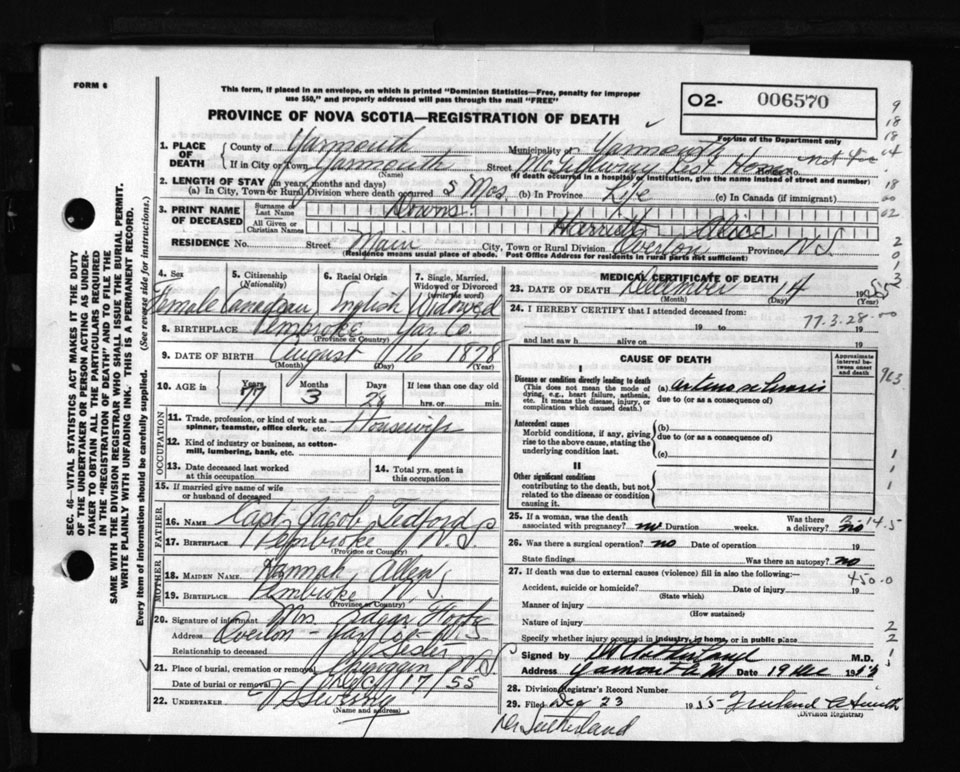 FORM 6
This form, if placed in an envelope, on which is printed "Dominion Statistics—Free, penalty for improper
use $50," and properly addressed will pass through the mail "FREE"
O2- 006570
For use of the Department only
PROVINCE OF NOVA SCOTIA—REGISTRATION OF DEATH
1. PLACE OF DEATH
County of Yarmouth Municipality of Yarmouth
If in City or Town Yarmouth Street Rest Home House No.
(Name) (If death occurred in a hospital or institution, give the name instead of street and number)
2. LENGTH OF STAY (in years, months and days)
(a) In City, Town or Rural Division where death occurred 5 Mos. (b) In Province Life (c) In Canada (if immigrant)
3. PRINT NAME OF DECEASED
Surname or Last Name Downs
All Given or Christian Names Harriett Alice
RESIDENCE No. Street Main City, Town or Rural Division Overton Province N.S.
(Residence means usual place of abode. Post Office Address for residents in rural parts not sufficient)
4. Sex 5. Citizenship (Nationality) 6. Racial Origin 7. Single, Married, Widowed or Divorced (write the word)
Female Canadian English Widowed
8. BIRTHPLACE Pembroke Yar Co.
(Province or Country)
9. DATE OF BIRTH August 16 1878
(Month) (Day) (Year)
10. AGE in Years Months Days If less than one day old
77 3 28 hrs. or min.
OCCUPATION
11. Trade, profession, or kind of work as spinner, teamster, office clerk, etc. Housewife
12. Kind of industry or business, as cotton-mill, lumbering, bank, etc.
13. Date deceased last worked at this occupation
14. Total yrs. spent in this occupation
15. If married give name of wife or husband of deceased
FATHER
16. NAME Capt Jacob Tedford
17. BIRTHPLACE Pembroke N.S
(Province or Country)
MOTHER
18. MAIDEN NAME Hannah Allen
19. BIRTHPLACE Pembroke N.S
(Province or Country)
20. Signature of informant Mrs. Edgar
Address Overton - Yar Co. N.S
Relationship to deceased Sister
21. Place of burial, cremation or removal Chegoggin N.S
Date of burial or removal Dec 17/55
22. UNDERTAKER V S Sweeny
(Name and address)
MEDICAL CERTIFICATE OF DEATH
23. DATE OF DEATH December 14 1955
(Month) (Day) (Year)
24. I HEREBY CERTIFY that I attended deceased from:
77-3-28-00
19 to 19
and last saw h alive on 19
CAUSE OF DEATH
Approximate interval between onset and death
I
Disease or condition directly leading to death (a) arteriosclerosis
(This does not mean the mode of dying, e.g., heart failure, asthenia, etc. It means the disease, injury, or complication which caused death.)
due to (or as a consequence of)
Antecedent causes
Morbid conditions, if any, giving rise to the above cause, stating the underlying condition last.
(b)
due to (or as a consequence of)
(c)
II
Other significant conditions
contributing to the death, but not related to the disease or condition causing it.
25. If a woman, was the death associated with pregnancy? no Duration weeks. Was there a delivery? no
26. Was there a surgical operation? no Date of operation 19
State findings Was there an autopsy? no
27. If death was due to external causes (violence) fill in also the following:—
450-0
Accident, suicide or homicide? Date of injury 19
(State which)
Manner of injury
(How sustained)
Nature of injury
Specify whether injury occurred in industry, in home, or in public place
Signed by Sutherland M.D.
Address Yarmouth Date 19 Dec 1955
28. Division Registrar's Record Number
29. Filed Dec 23 1955
(Division Registrar)
Dr Sutherland
SEC. 46—VITAL STATISTICS ACT MAKES IT THE DUTY
OF THE UNDERTAKER OR PERSON ACTING AS UNDER-
TAKER TO OBTAIN ALL THE PARTICULARS REQUIRED
IN THE "REGISTRATION OF DEATH" AND TO FILE THE
SAME WITH THE DIVISION REGISTRAR WHO SHALL ISSUE THE BURIAL PERMIT.
WRITE PLAINLY WITH UNFADING INK. THIS IS A PERMANENT RECORD.
Every item of information should be carefully supplied. (See reverse side for instructions.)